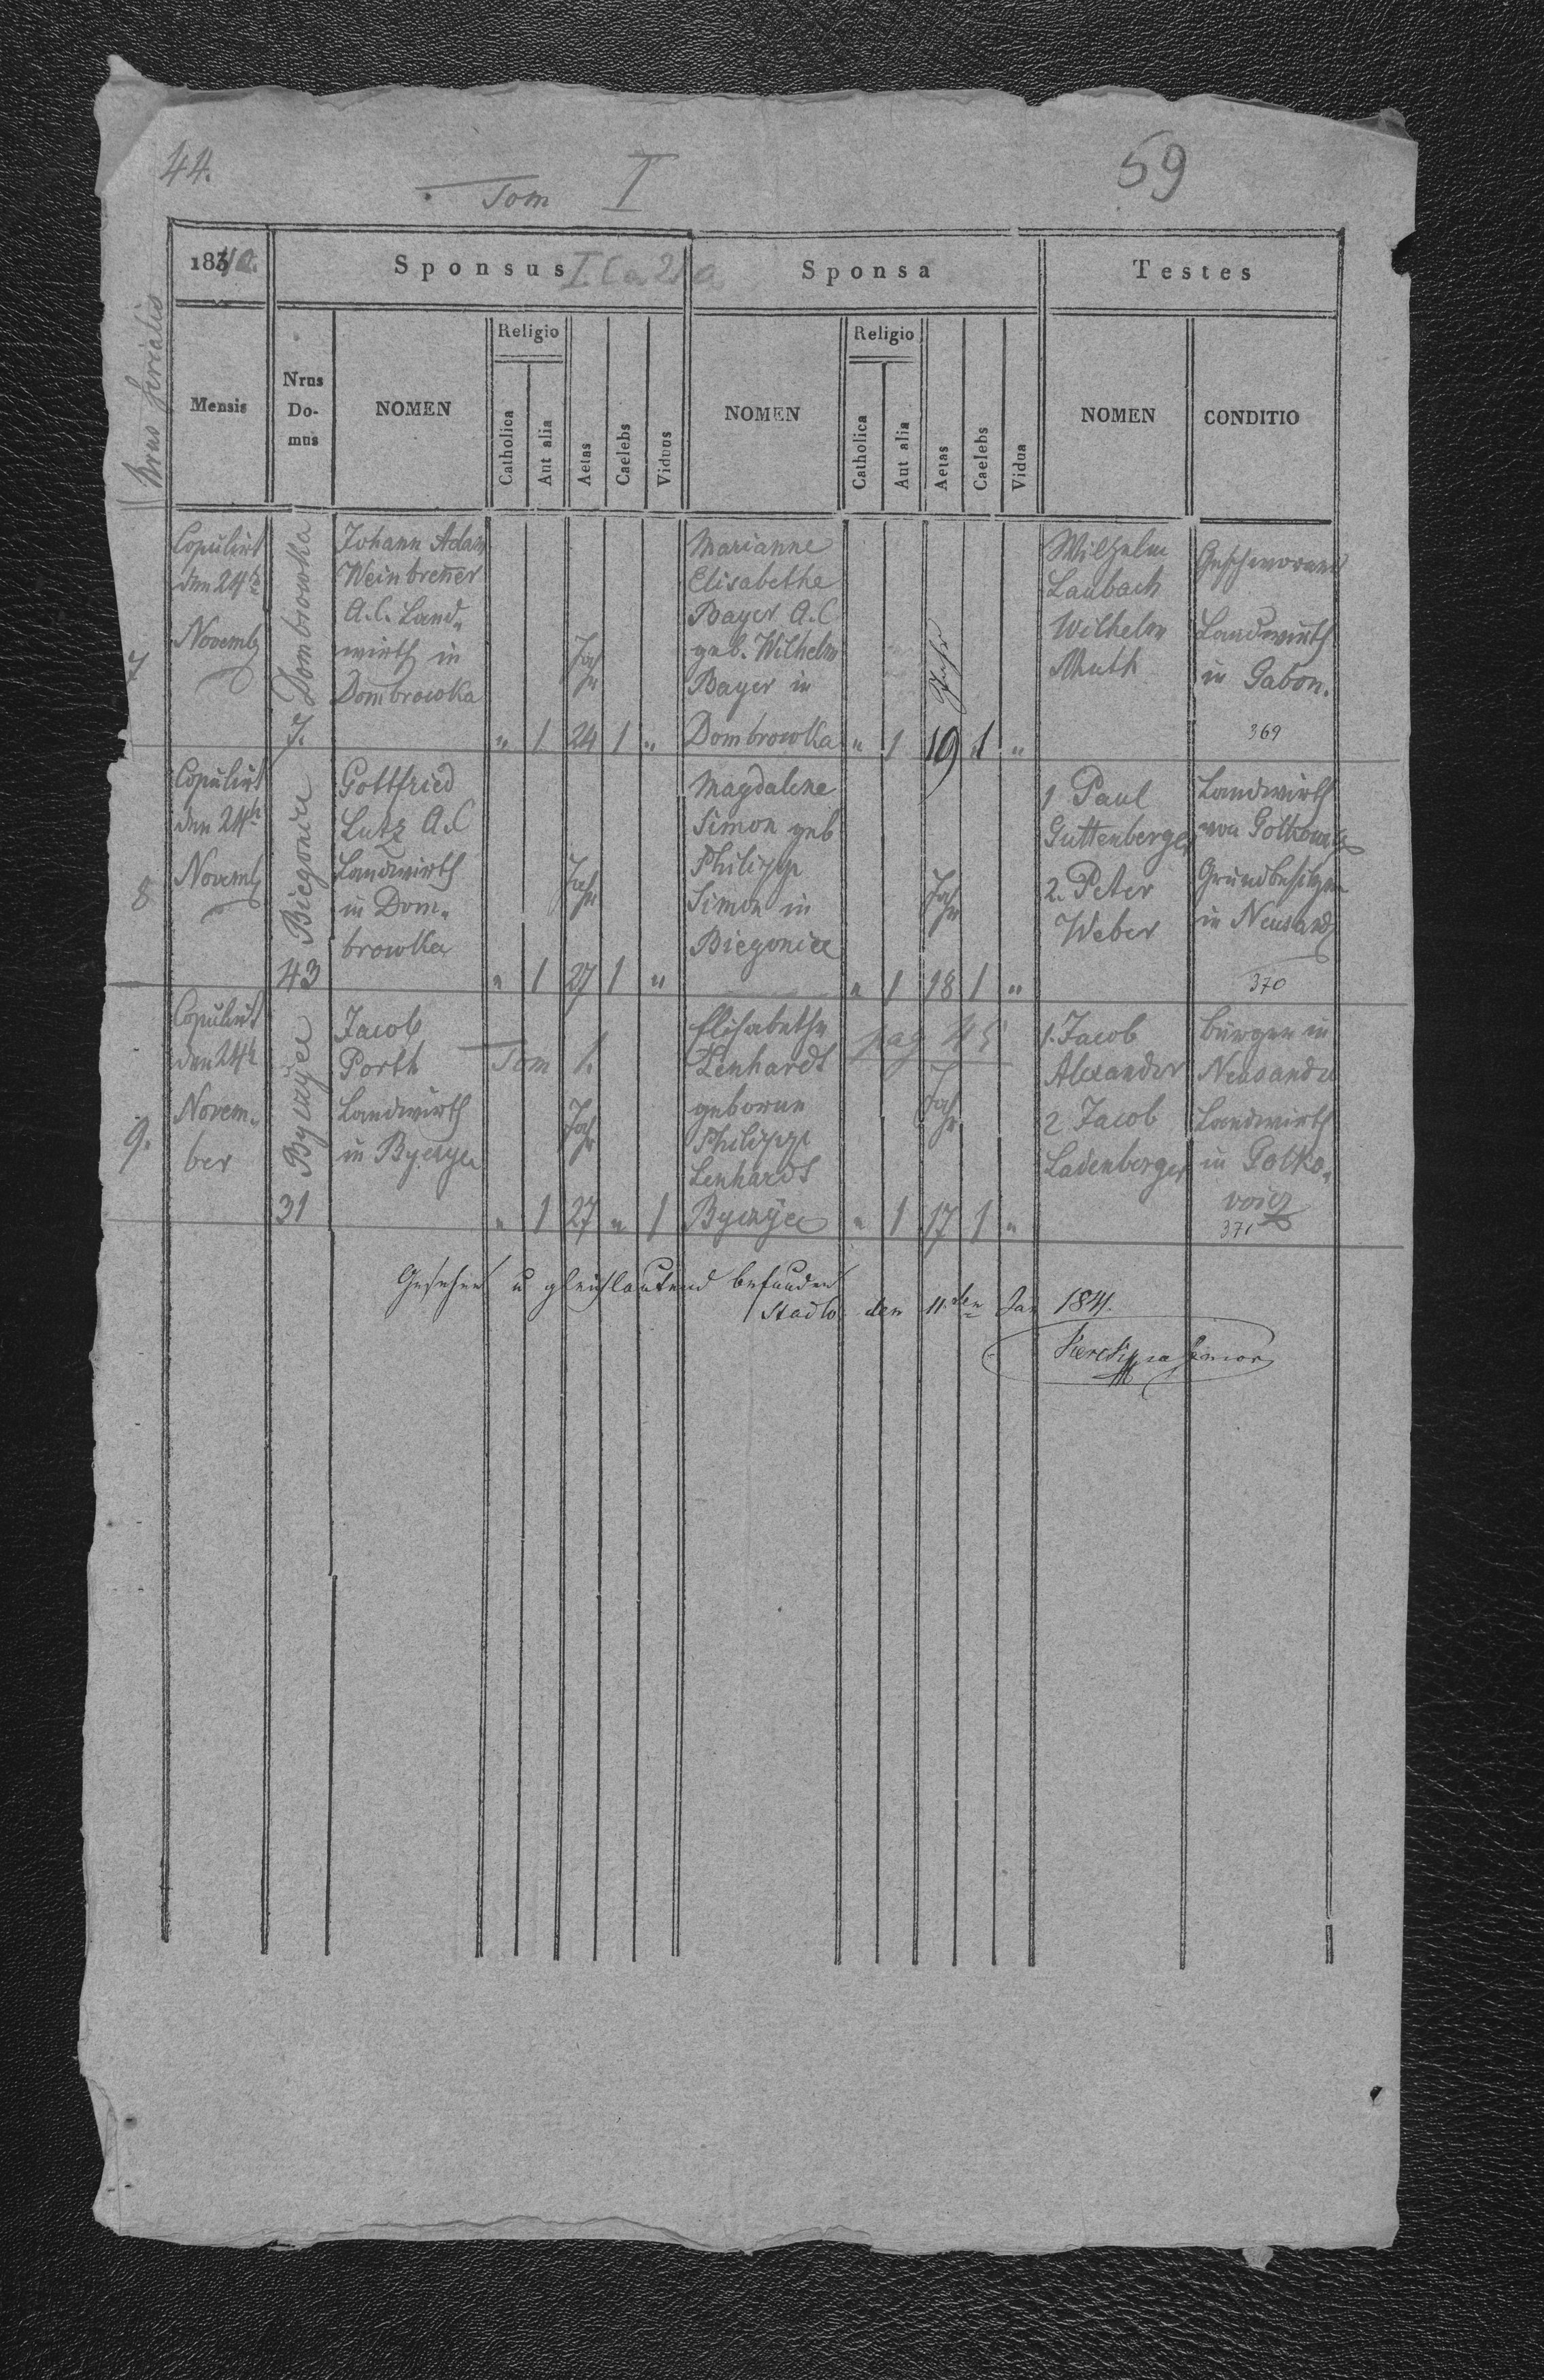 44.
Tom I
59
1840.
Sponsus
Sponsa
Testes
Nrus Serialis
Mensis
Nrus Do-
mus
NOMEN
Religio
Catholica
Aut alia
Aetas
Caelebs
Viduus
NOMEN
Religio
Catholica
Aut alia
Aetas
Caelebs
Vidua
NOMEN
CONDITIO
7
Copulirt
den 24t
Novemb
Dombrowka
7.
Johann Adam
Weinbrenner
A.C. Land„
wirth in
Dombrowka
„ 1 Jahr 24 1 „
Marianne
Elisabethe
Bayer A.C
geb. Wilhelm
Bayer in
Dombrowka
„ 1 Jahr 19 1 „
Wilhelm
Laubach
Wilhelm
Muth
Geschworner
Landwirth
in Gabon.
369
8
Copulirt
den 24t
Novemb
Biegonice
43
Gottfried
Lutz A.C
Landwirth
in Dom„
browka
„ 1 Jahr 27 1 „
Magdalene
Simon geb
Philipp
Simon in
Biegonice
„ 1 Jahr 18 1 „
1 Paul
Guttenberger
2. Peter
Weber
Landwirth
von Golkowitz
Grundbesitzer
in Neusandz
370
9.
Copulirt
den 24t
Novem„
ber
Byczyce
31
Jacob
Porth
Landwirth
in Byczyce
Tom 1.
„ 1 Jahr 27 „ 1
Elisabetha
Lenhardt
geborne
Philipp
Lenhardt
Byczyce
pag 45
„ 1 Jahr 17 1 „
1. Jacob
Alexander
2 Jacob
Ladenberger
Bürger in
Neusandec
Landwirth
in Golko„
371
Gesehen u gleichlautend befunden
Stadlo den 11.ten Jan 1841.